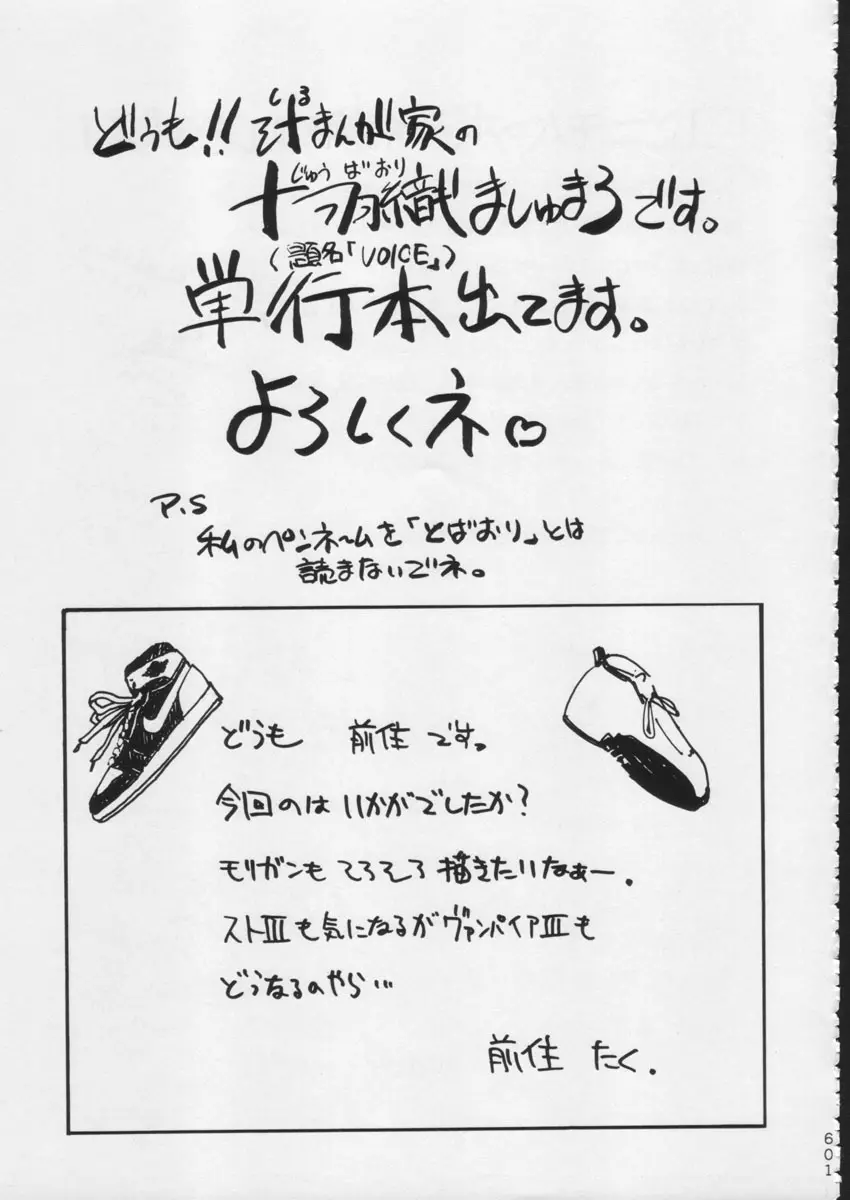 どうも!! 汁まんが家の
しる
十羽織ましゅまろです。
じゅう ばおり
(題名「VOICE」)
単行本出てます。
よろしくネ♡
P.S
私のペンネームを「とばおり」とは
読まないでネ。
どうも 前住 です。
今回のは いかがでしたか?
モリガンも そろそろ 描きたいなぁー.
ストⅢも気になるがヴァンパイアⅢも
どうなるのやら…
前住 たく.
601